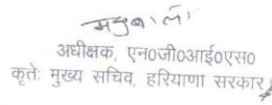 मधुबाला
अधीक्षक, एन0जी0आई0एस0
कृतेः मुख्य सचिव, हरियाणा सरकार